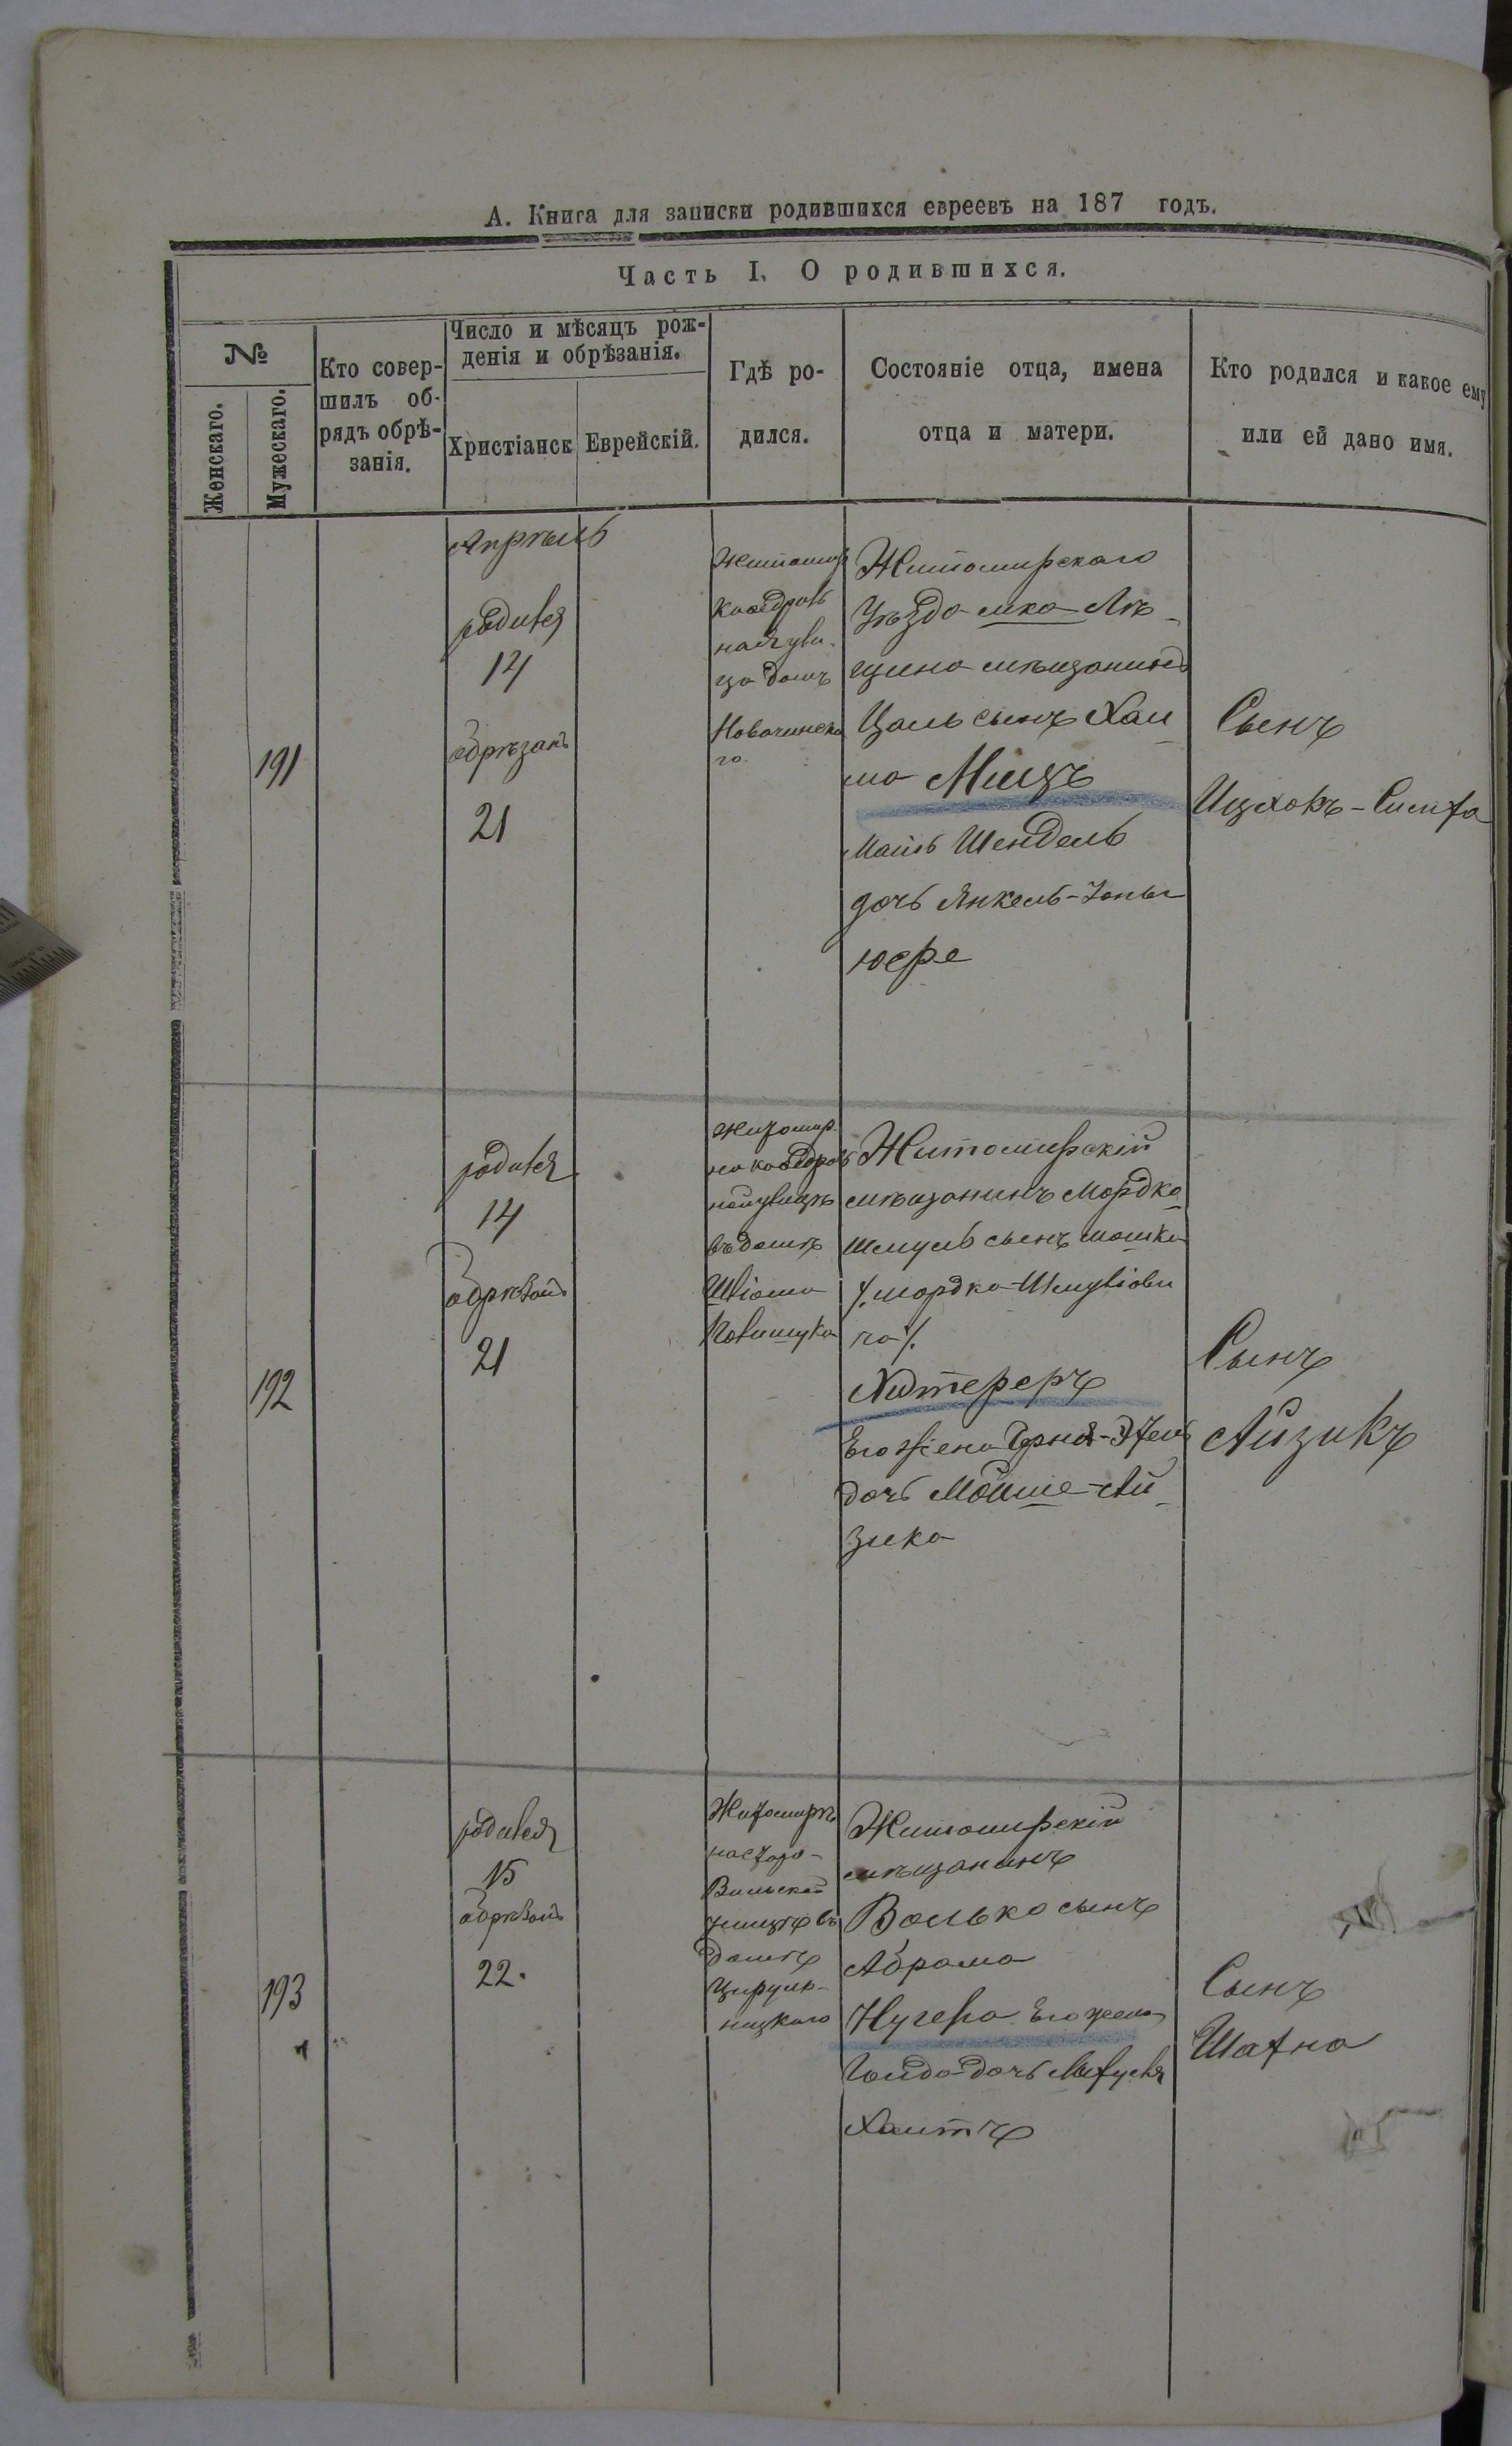 А. Книга для записки родившихся евреевъ на 187 годъ.
Часть I. О родившихся.
№
Женскаго.
Мужескаго.
Кто совер-
шилъ об-
рядъ обрѣ-
занія.
Число и мѣсяцъ рож-
денія и обрѣзанія.
Христіанск
Еврейскій.
Гдѣ ро-
дился.
Состояніе отца, имена
отца и матери.
Кто родился и какое ему
или ей дано имя.
191
Апрѣль
родился
14
обрѣзанъ
21
Житомир
каѳедраль
ная ули-
ца домъ
го
Житомирскаго
Уѣзда мка
мѣщанинъ
Цаль сынъ Хаи
ма Мицъ
Мать Шендель
дочь Янкель-
Сынъ
Ицхокъ-
192
родился
14
обрѣзанъ
21
Житомир
на каѳедраль
ной улицѣ
въ домѣ
Шліома
Житомирскій
мѣщанинъ Мордко
Шмуль сынъ Мошка
Мордко-Шмулiови
ча
Его жена
дочь Мойше-Ай
зика
Сынъ
Айзикъ
193
родился
15
обрѣзанъ
22.
Житомиръ
на Старо-
Вильской
улицѣ въ
домѣ
Цируль-
ницкаго
Житомирскій
мѣщанинъ
Волько сынъ
Абрама
Нугера Его жена
дочь
Сынъ
Шахна